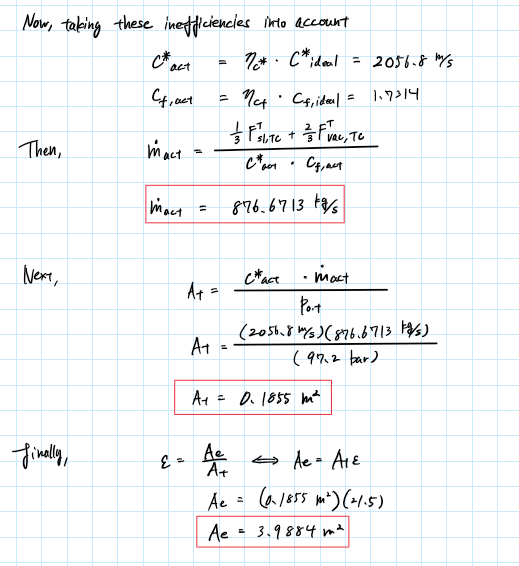 Now, taking these inefficiencies into account
C*act = ηc* · C*ideal = 2056.8 m/s
Cf,act = ηcf · Cf,ideal = 1.7314
Then, ṁact = (1/3 F^T sl,TC + 2/3 F^T vac,TC) / (C*act · Cf,act)
ṁact = 876.6713 kg/s
Next, At = (C*act · ṁact) / P0,t
At = (2056.8 m/s)(876.6713 kg/s) / (97.2 bar)
At = 0.1855 m²
finally, ε = Ae/At ⟺ Ae = Atε
Ae = (0.1855 m²)(21.5)
Ae = 3.9884 m²